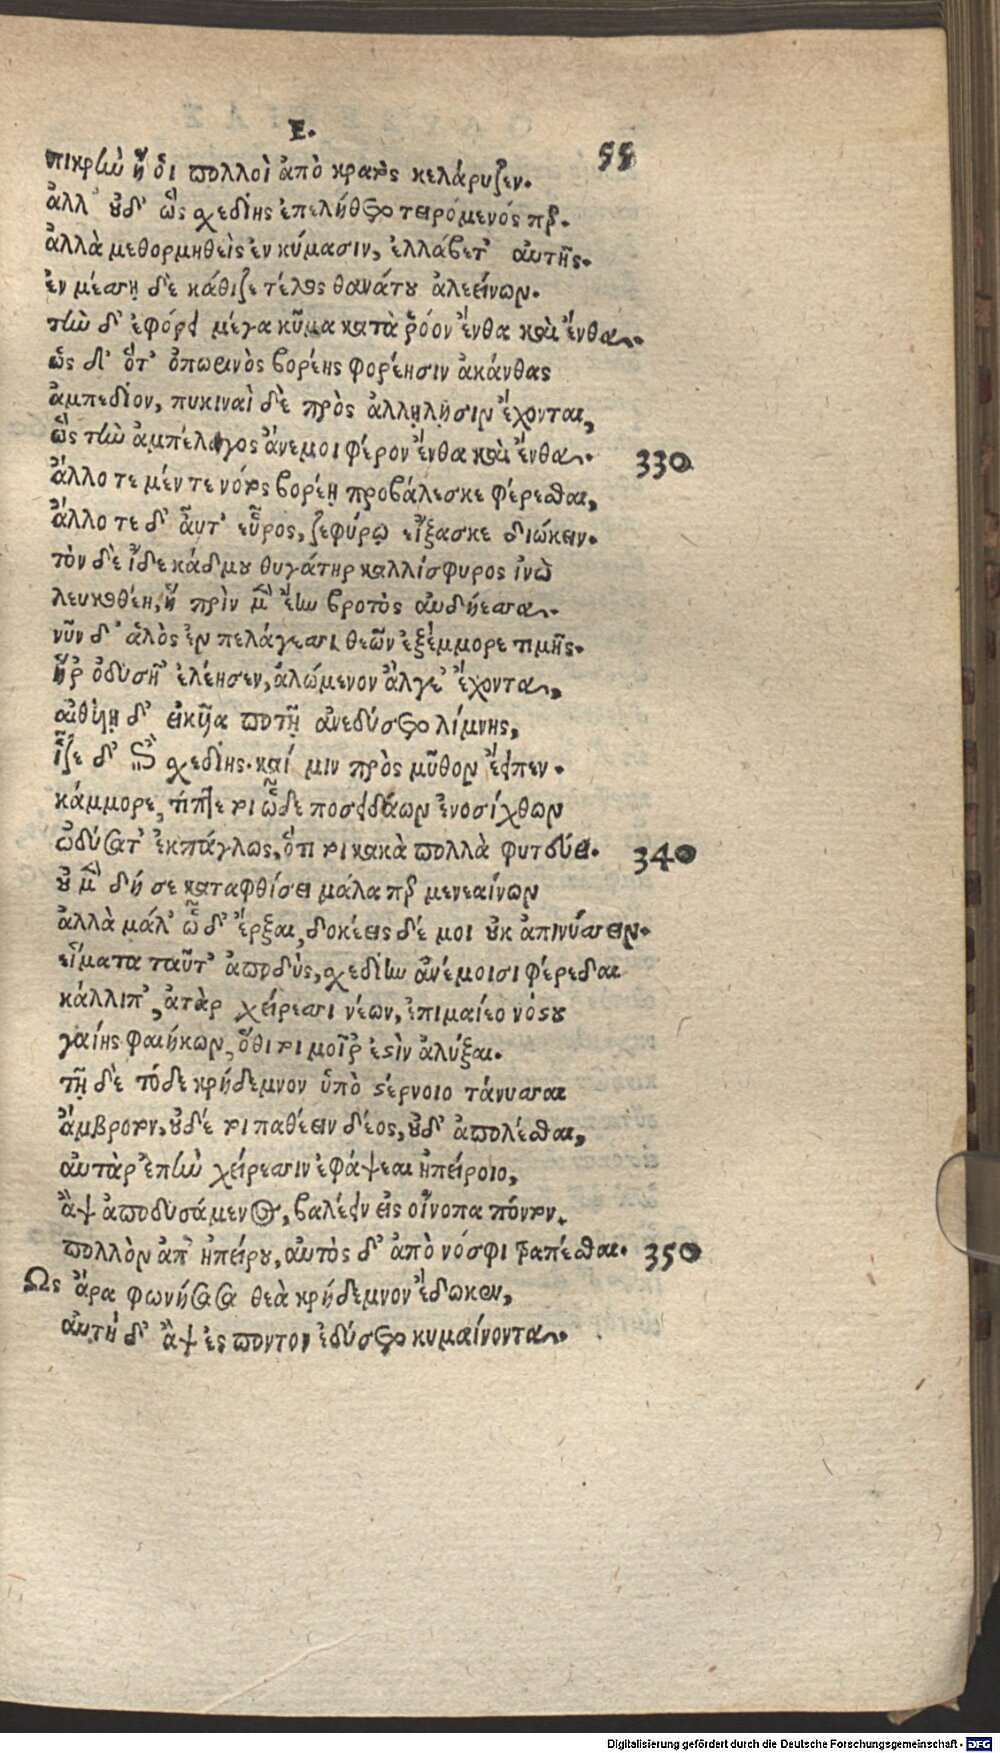 Ε.
55
πικρὴν ἥ οἱ πολλοὶ ἀπὸ κρατὸς κελάρυζεν.
ἀλλ' οὐδ' ὣς σχεδίης ἐπελήθετο τειρόμενός περ.
ἀλλὰ μεθορμηθεὶς ἐν κύμασιν, ἐλλάβετ' αὐτῆς.
ἐν μέσσῃ δὲ κάθιζε τέλος θανάτου ἀλεείνων.
τὴν δ' ἐφόρει μέγα κῦμα κατὰ ῥόον ἔνθα καὶ ἔνθα.
ὡς δ' ὅτ' ὀπωρινὸς βορέης φορέησιν ἀκάνθας
ἀμπεδίον, πυκιναὶ δὲ πρὸς ἀλλήλῃσιν ἔχονται,
ὣς τὴν ἀμπέλαγος ἄνεμοι φέρον ἔνθα καὶ ἔνθα.
330
ἄλλοτε μέν τε νότος βορέῃ προβάλεσκε φέρεσθαι,
ἄλλοτε δ' αὖτ' εὖρος, ζεφύρῳ εἴξασκε διώκειν.
τὸν δὲ ἴδε κάδμου θυγάτηρ καλλίσφυρος ἰνὼ
λευκοθέη, ἣ πρὶν μὲν ἔην βροτὸς αὐδήεσσα.
νῦν δ' ἁλὸς ἐν πελάγεσσι θεῶν ἐξέμμορε τιμῆς.
ἥ ῥ' ὀδυσῆ' ἐλέησεν, ἀλώμενον ἄλγε' ἔχοντα,
αἰθύῃ δ' εἰκυῖα ποτῇ ἀνεδύσετο λίμνης,
ἷζε δ' ἐπὶ σχεδίης. καί μιν πρὸς μῦθον ἔειπεν.
κάμμορε, τίπτέ τοι ὧδε ποσειδάων ἐνοσίχθων
ὠδύσατ' ἐκπάγλως, ὅτι τοι κακὰ πολλὰ φυτεύει.
340
οὐ μὲν δή σε καταφθίσει μάλα περ μενεαίνων
ἀλλὰ μάλ' ὧδ' ἔρξαι, δοκέεις δέ μοι οὐκ ἀπινύσσειν.
εἵματα ταῦτ' ἀποδὺς, σχεδίην ἀνέμοισι φέρεσθαι
κάλλιπ', ἀτὰρ χείρεσσι νέων, ἐπιμαίεο νόστου
γαίης φαιήκων, ὅθι τοι μοῖρ' ἐστὶν ἀλύξαι.
τῇ δὲ τόδε κρήδεμνον ὑπὸ στέρνοιο τάνυσσαι
ἄμβροτον, οὐδέ τοι παθέειν δέος, οὐδ' ἀπολέσθαι,
αὐτὰρ ἐπὴν χείρεσσιν ἐφάψεαι ἠπείροιο,
ἂψ ἀποδυσάμενος, βαλέειν εἰς οἴνοπα πόντον.
πολλὸν ἀπ' ἠπείρου, αὐτὸς δ' ἀπὸ νόσφι τραπέσθαι.
350
Ὣς ἄρα φωνήσασα θεὰ κρήδεμνον ἔδωκεν,
αὐτὴ δ' ἂψ ἐς ποντον ἐδύσετο κυμαίνοντα.
Digitalisierung gefördert durch die Deutsche Forschungsgemeinschaft - DFG